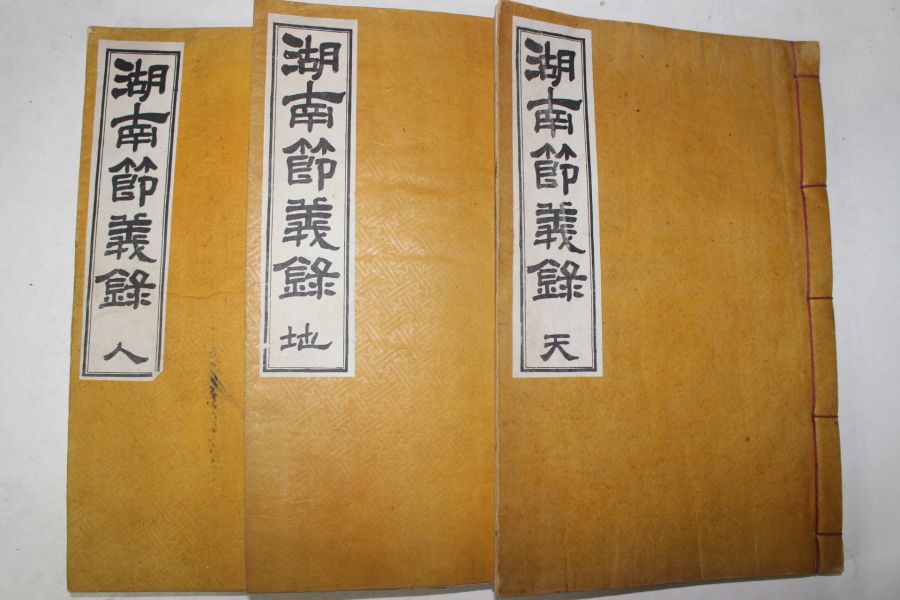 湖南節義錄 天
湖南節義錄 地
湖南節義錄 人